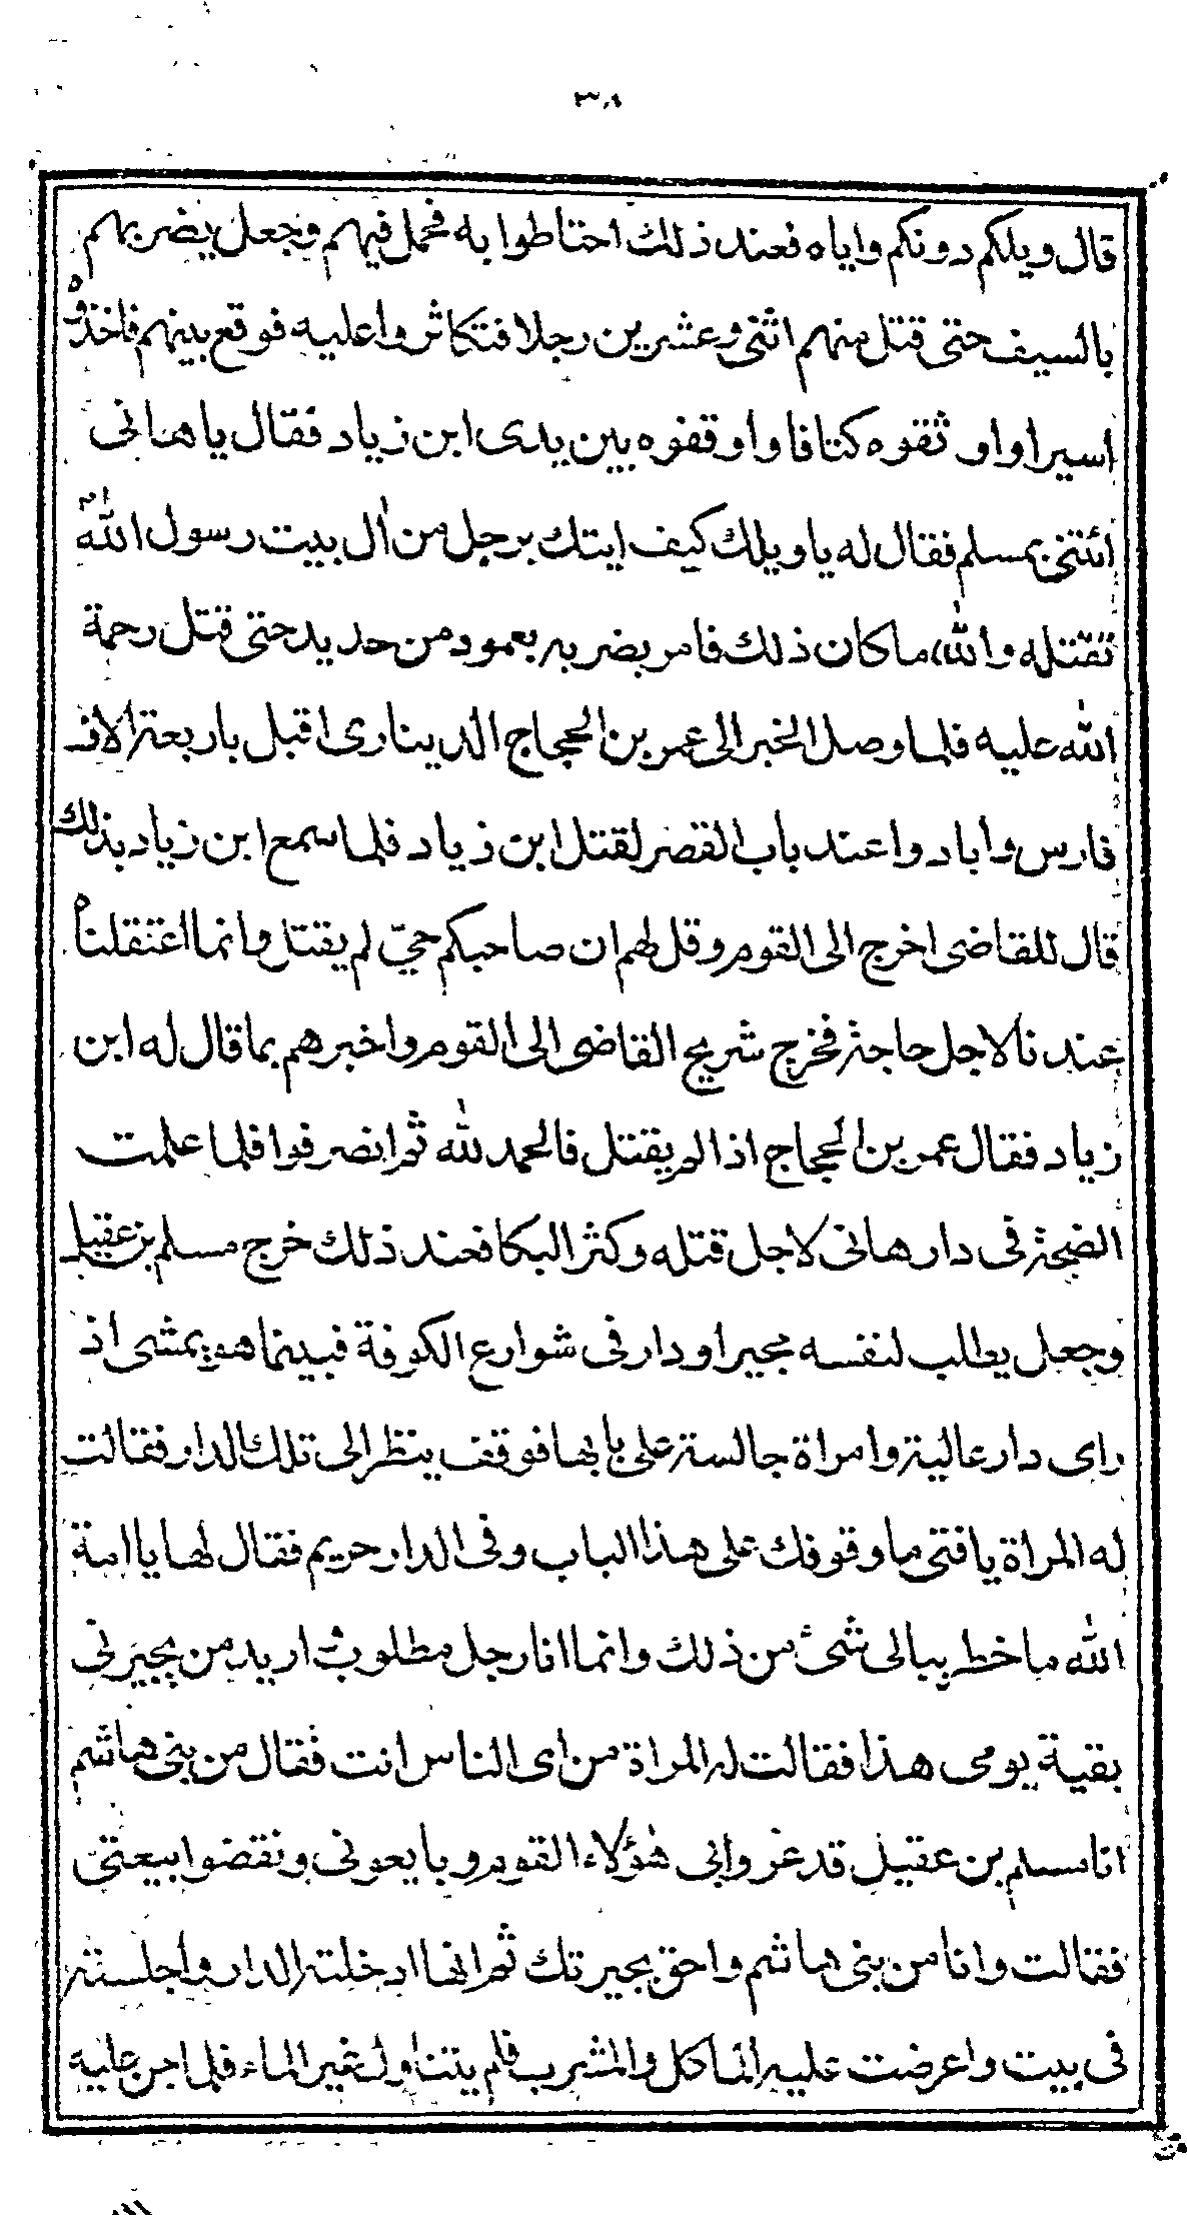 ٣٨
قال ويلكم دونكم واياه فعند ذلك احتاطوا به فحمل فيهم وجعل يضربهم
بالسيف حتى قتل منهم اثنى وعشرين رجلا فتكاثروا عليه فوقع بينهم فاخذوه
اسيرا واوثقوه كتافا واوقفوه بين يدى ابن زياد فقال يا هانى
ائتنى بمسلم فقال له يا ويلك كيف ايتك برجل من اٰل بيت رسول الله
تقتله والله ما كان ذلك فامر بضربه بعمود من حديد حتى قتل رحمة
الله عليه فلما وصل الخبر الى عمر بن الحجاج الدينارى اقبل باربعة الاف
فارس واباد واعند باب القصر لقتل ابن زياد فلما سمع ابن زياد بذلك
قال للقاضى اخرج الى القوم وقل لهم ان صاحبكم حيّ لم يقتل وانما اعتقلناه
عندنا لاجل حاجة فخرج شريح القاضى الى القوم واخبرهم بما قال له ابن
زياد فقال عمر بن الحجاج اذا لم يقتل فالحمد لله ثم انصرفوا فلما علمت
الضجة فى دار هانى لاجل قتله وكثر البكا فعند ذلك خرج مسلم بن عقيل
وجعل يطلب لنفسه مجيرا ودار فى شوارع الكوفة فبينما هو يمشى اذ
راى دار عالية وامراة جالسة على بابها فوقف ينظر الى تلك الدار فقالت
له المراة يا فتى ما وقوفك على هذا الباب وفى الدار حريم فقال لها يا امة
الله ما خطر ببالى شئ من ذلك وانما انا رجل مطلوب اريد من يجيرنى
بقية يومى هذا فقالت له المراة من اى الناس انت فقال من بنى هاشم
انا مسلم بن عقيل قد غروابى هؤلاء القوم وبايعونى ونقضوا بيعتى
فقالت وانا من بنى هاشم واحق بجيرتك ثم انها ادخلته الدار واجلسته
فى بيت واعرضت عليه الماكل والمشرب فلم يتناول غير الماء فلما جن عليه